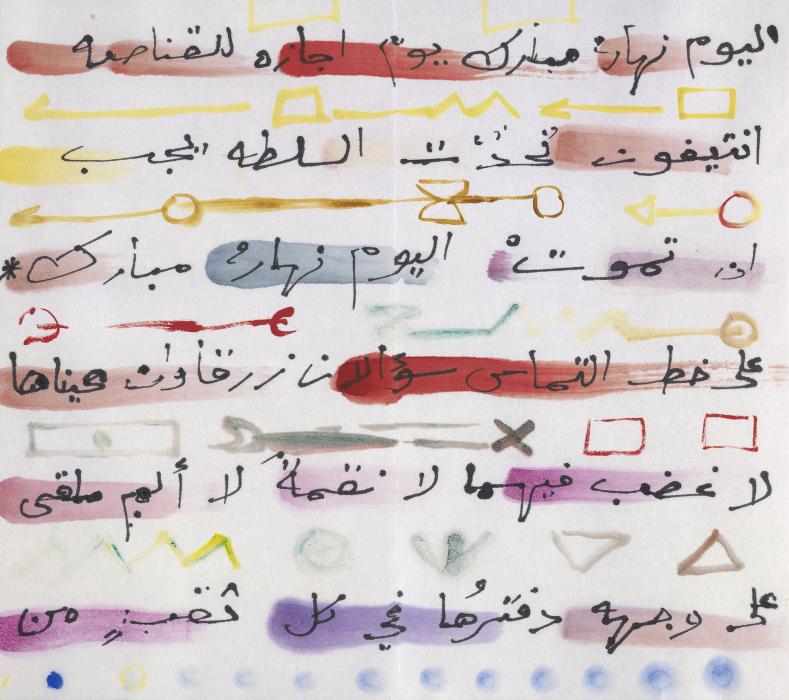 اليوم نهارٌ مبارك يوم اجازه للقناصه
انتيغون تُحدّث السلطه يجب
ان تموتْ اليوم نهارٌ مبارك *
على خط التماس سؤالان زرقاوان عيناها
لا غضب فيهما لا نقمةً لا أليم ملقى
على وجهه دفترُها في كل ثقبٍ من